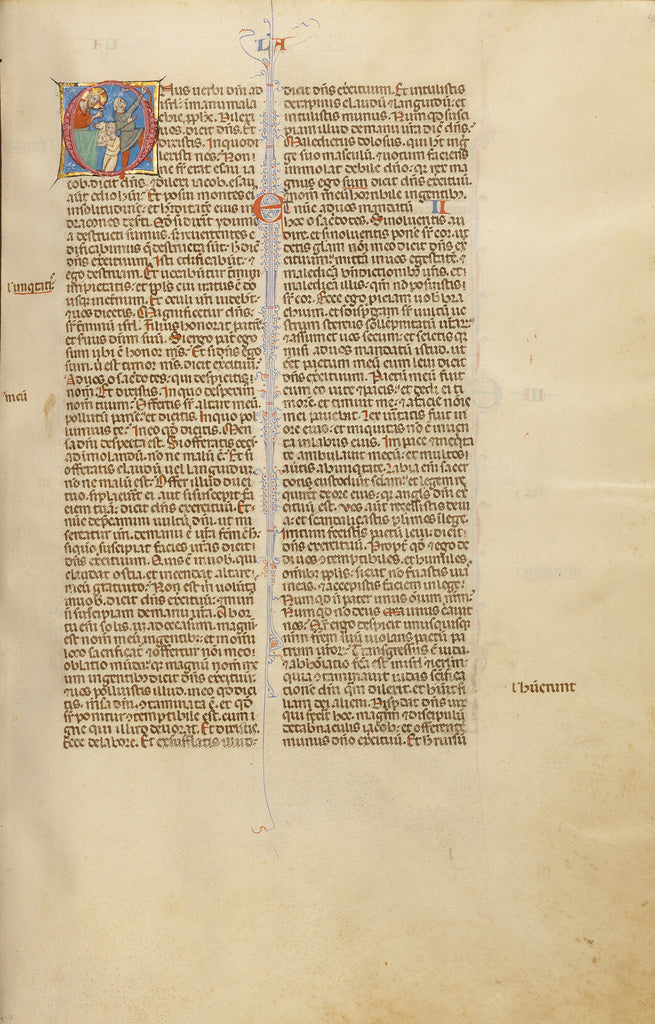 LA
Nus verbi dñi ad
isrl' i manu mala
chie. pphe. Dilexi
vos. dicit dñs. Et
dixistis. In quo di
lexisti nos. Non
ne fr̄ erat esau ia
cob. dicit dñs. ⁊ dilexi iacob. esau
aut̄ odio hui. Et posui montes ei'
in solitudinē. et h̄ditatē eius in
dracones deserti. Qd̄ si dix̄it ydume
a destructi sumus. sȝ revertentes e
dificabimus q̄ destructa sūt. h̄ dic̄
dñs exercituum. Isti edificabūt. ⁊
ego destruam. Et vocabūtur t̄mini
impietatis. et ppl̄s cui iratus ē dñs
usq; in et̄num. Et oculi vr̄i videbūt.
⁊ vos dicetis. Magnificetur dñs
sr̄ t̄minū isrl'. Filius honorat patrē.
et servus dñm suū. Si ergo pat̄ ego
sum. ubi ē honor m̄s. Et si dñs ego
sum. ubi est timor m̄s. dicit dñs exercituū.
Ad vos o sac̄dotes. qui despicitis
nom̄ meū. Et dixistis. In quo despeximus
nom̄ tuum. Offertis sr̄ altare meū
pollutū panē. et dicitis. In quo pol
luimus te. In eo qd̄ dicitis. Men
sa dñi despecta est. Si offeratis cecū
ad imolandū. nōne malū ē. Et si
offeratis claudū vel languidū.
nōne malū est. Offer illud duci
tuo. si placuerit ei. aut si susceperit fa
ciem tuā. dicit dñs exercituū. Et
nūc dep̄camini vultū dñi. ut mi
sereatur vr̄i. de manu ē vr̄a fc̄m ē h̄.
si quo suscipiat facies vr̄as. dicit
dñs exercituum. Quis ē in vob. qui
claudat ostia. et incendat altare
meū gratuito. Non est m̄ volūtas
in vob. dicit dñs exercituū. ⁊ mun'
nō suscipiam de manu vr̄a. Ab or
tu eni solis. usq; ad occasum. magnū
est nom̄ meū in gentibȝ. et in omni
loco sacrificat̄ ⁊ offertur noī meo
oblatio mūda. q̄ magnū nom̄ m̄
um in gentibȝ dicit dñs exercituū.
⁊ vos polluistis illud. in eo qd̄ dici
tis. Mensa dñi. ⁊taminata ē. et qd̄
sr̄ ponitur ⁊temptibile est. cum i
gne qui illud devorat. Et dixistis.
Ecce de labore. Et exsufflastis illud.
dicit dñs exercituum. Et intulistis
de rapinis claudū ⁊ languidū. et
intulistis munus. Nunqd̄ susci
piam illud de manu vr̄a dicit dñs.
Maledictus dolosus. qui h̄t in g̊
ge suo masculū. ⁊ votum faciens
immolat debile dño. q̄ rex ma
gnus ego sum dicit dñs exercituū.
⁊ nom̄ meū horribile in gentibȝ.
II
Et nūc ad vos mandatū
hoc o sac̄dotes. Si nolueritis au
dire. et si nolueritis pone sr̄ cor. ut
detis glam̄ noī meo dicit dñs ex
ercituum. mittā in vos egestatē. ⁊
maledicā bn̄dictionibȝ vr̄is. et
maledicā illis. qm̄ nō posuistis
sr̄ cor. Ecce ego piciam vob bra
chium. et dispgam sr̄ vultū ve
strum stercus sollēpnitatū vr̄arū.
⁊ assumet vos secum. et scietis q̄
misi ad vos mandatū istud. ut
esset pactum meū cum levi dicit
dñs exercituum. Pactū meū fuit
cum eo vite ⁊ pacis. et dedi ei ti
more. et timuit me. ⁊ a facie noīs
mei pavebat. Lex v̄itatis fuit in
ore eius. et iniquitas nō ē inven
ta in labiis eius. In pace ⁊ in eqta
te ambulavit mecū. et multos
av̄tit ab iniqtate. Labia eni sac̄r
dotis custodiūt sciam̄. et legem re
quirēt de ore eius. q̄ angl's dñi ex
ercituū est. Vos aut̄ recessistis de vi
a. et scandalizastis plimos ī lege.
Irritum fecistis pactū levi. dicit
dñs exercituum. Propt̄ qd̄ ⁊ ego de
di vos ⁊temptibiles. et humiles
omībȝ pplis. sicut nō s̄vastis vias
meas. ⁊ accepistis faciem in lege.
Nunqd̄ nō pater unus oīum nrm̄.
Nunqd̄ nō deus unus creavit
nos. Quare ergo despicit unusquisq;
nrm̄ frem̄ suū. violans pactū pa
trum nr̄or. Transgressus ē iuda.
⁊ abhoīatio fc̄a est in isrl' ⁊ in ierlm̄.
quia ⁊taminavit iudas sc̄ifica
tionē dñi qm̄ dilexit. et h̄uit fi
liam dei alieni. Disp̄dat dñs virū
qui fecerit hoc. magrm̄ ⁊ discipulū
de tab̄naculis iacob. et offerentē
munus dño exercituū. Et h̄ rursū
meū
l' hūerunt